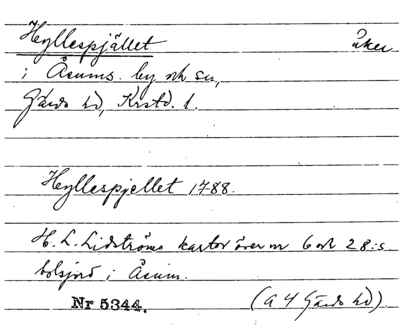 Hyllespjället åker
i Åsums by och sn,
Gärds hd, Krstd. l.
Hyllespjellet 1788.
H. L. Lidströms kartor över nr 6 och 28:s
bolsjord i Åsum.
Nr 5344. (a 4 Gärds hd)